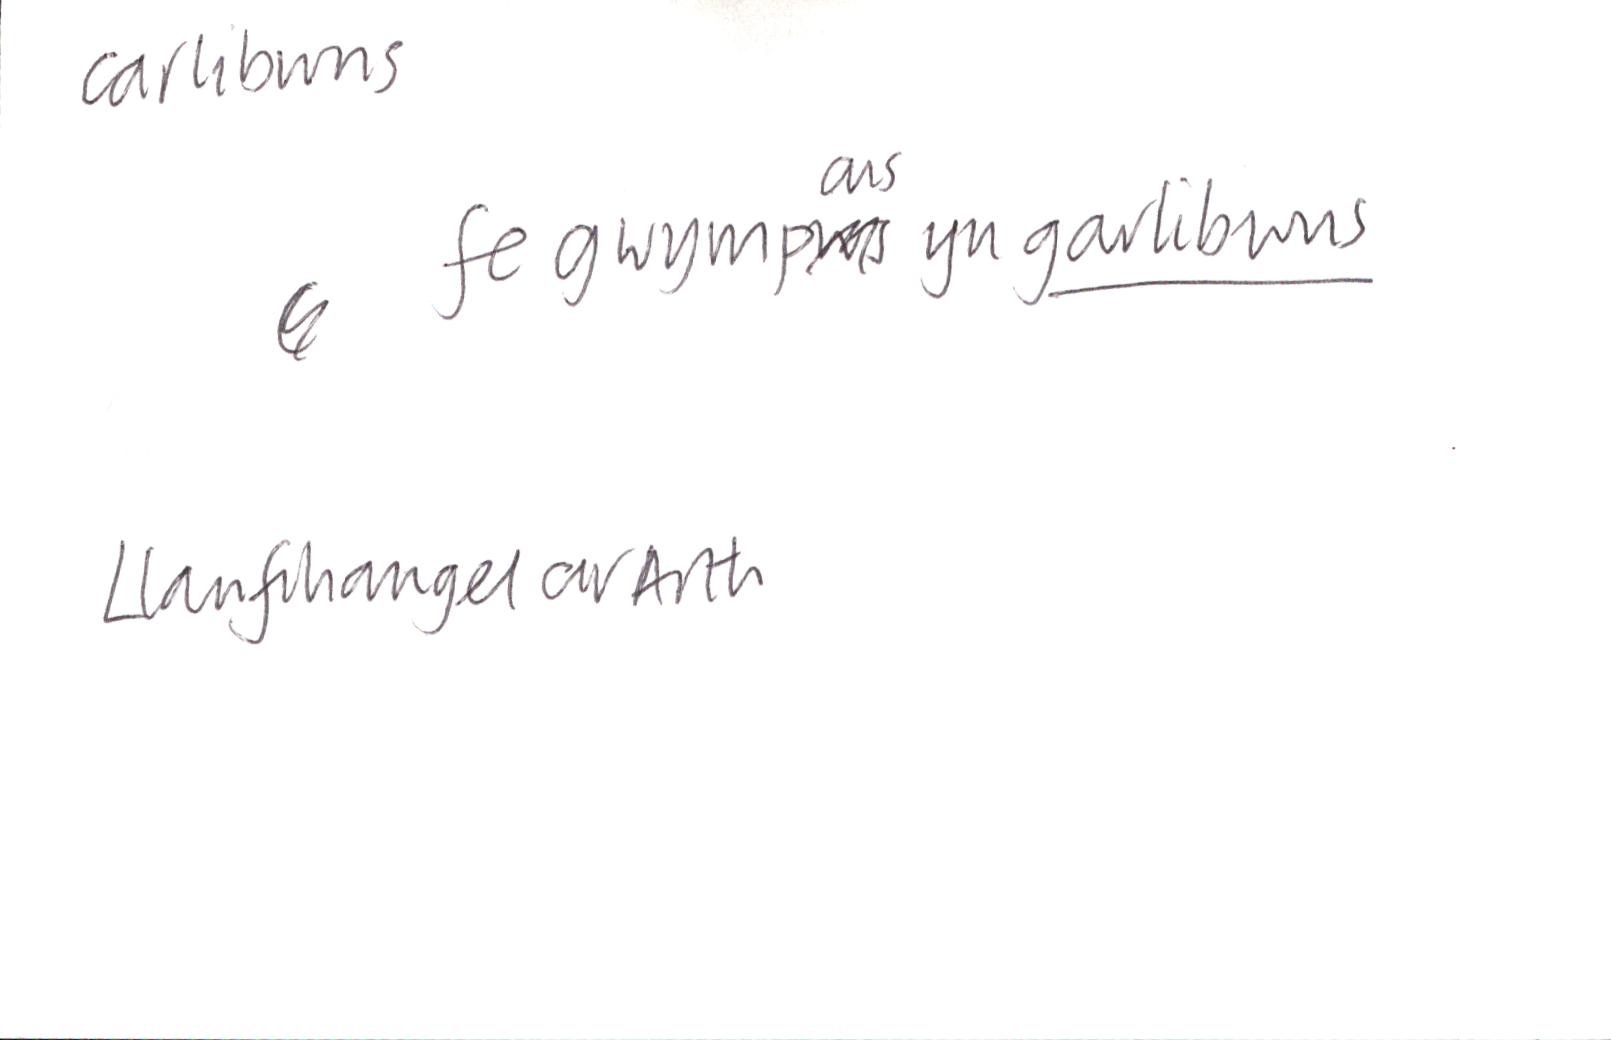 carlibwns
fe gwympais yn garlibwns
Llanfihangel ar Arth